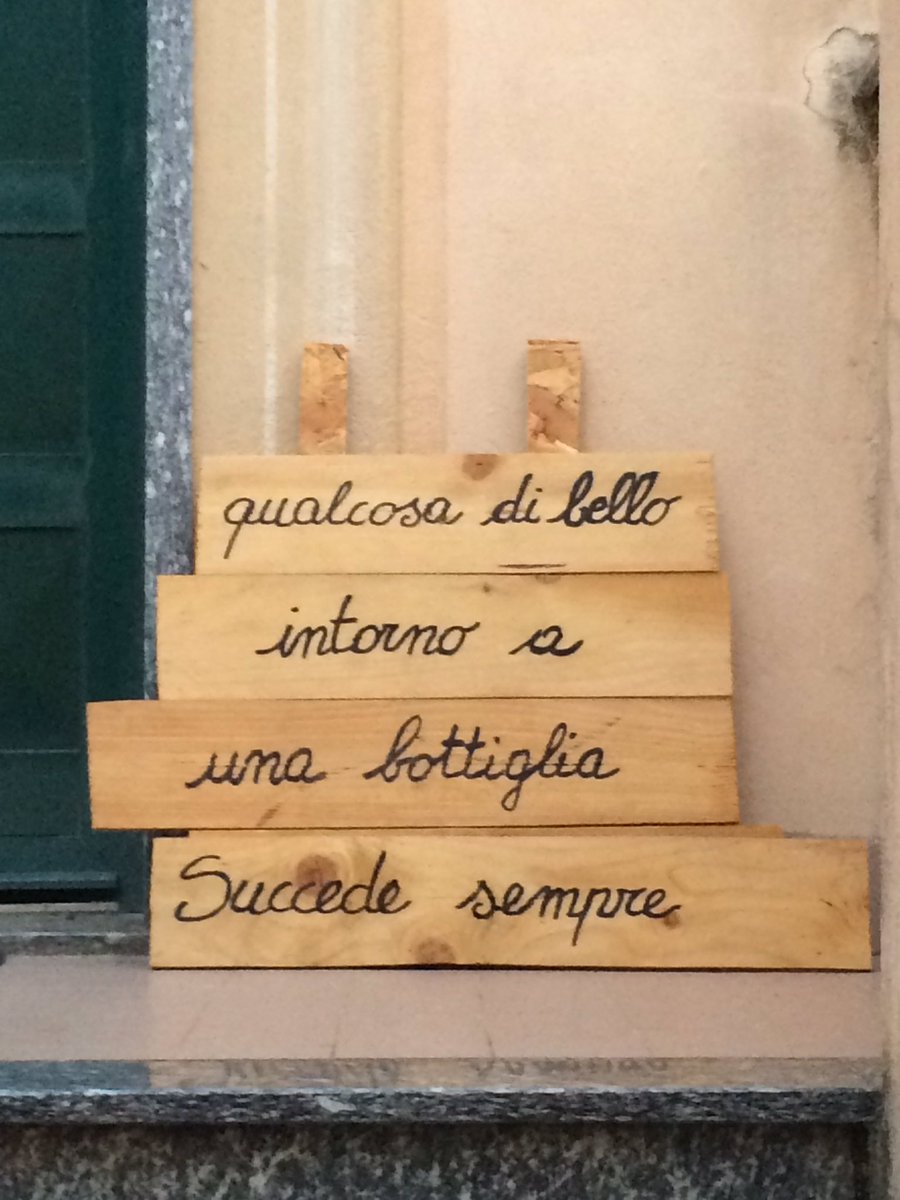 qualcosa di bello
intorno a
una bottiglia
Succede sempre